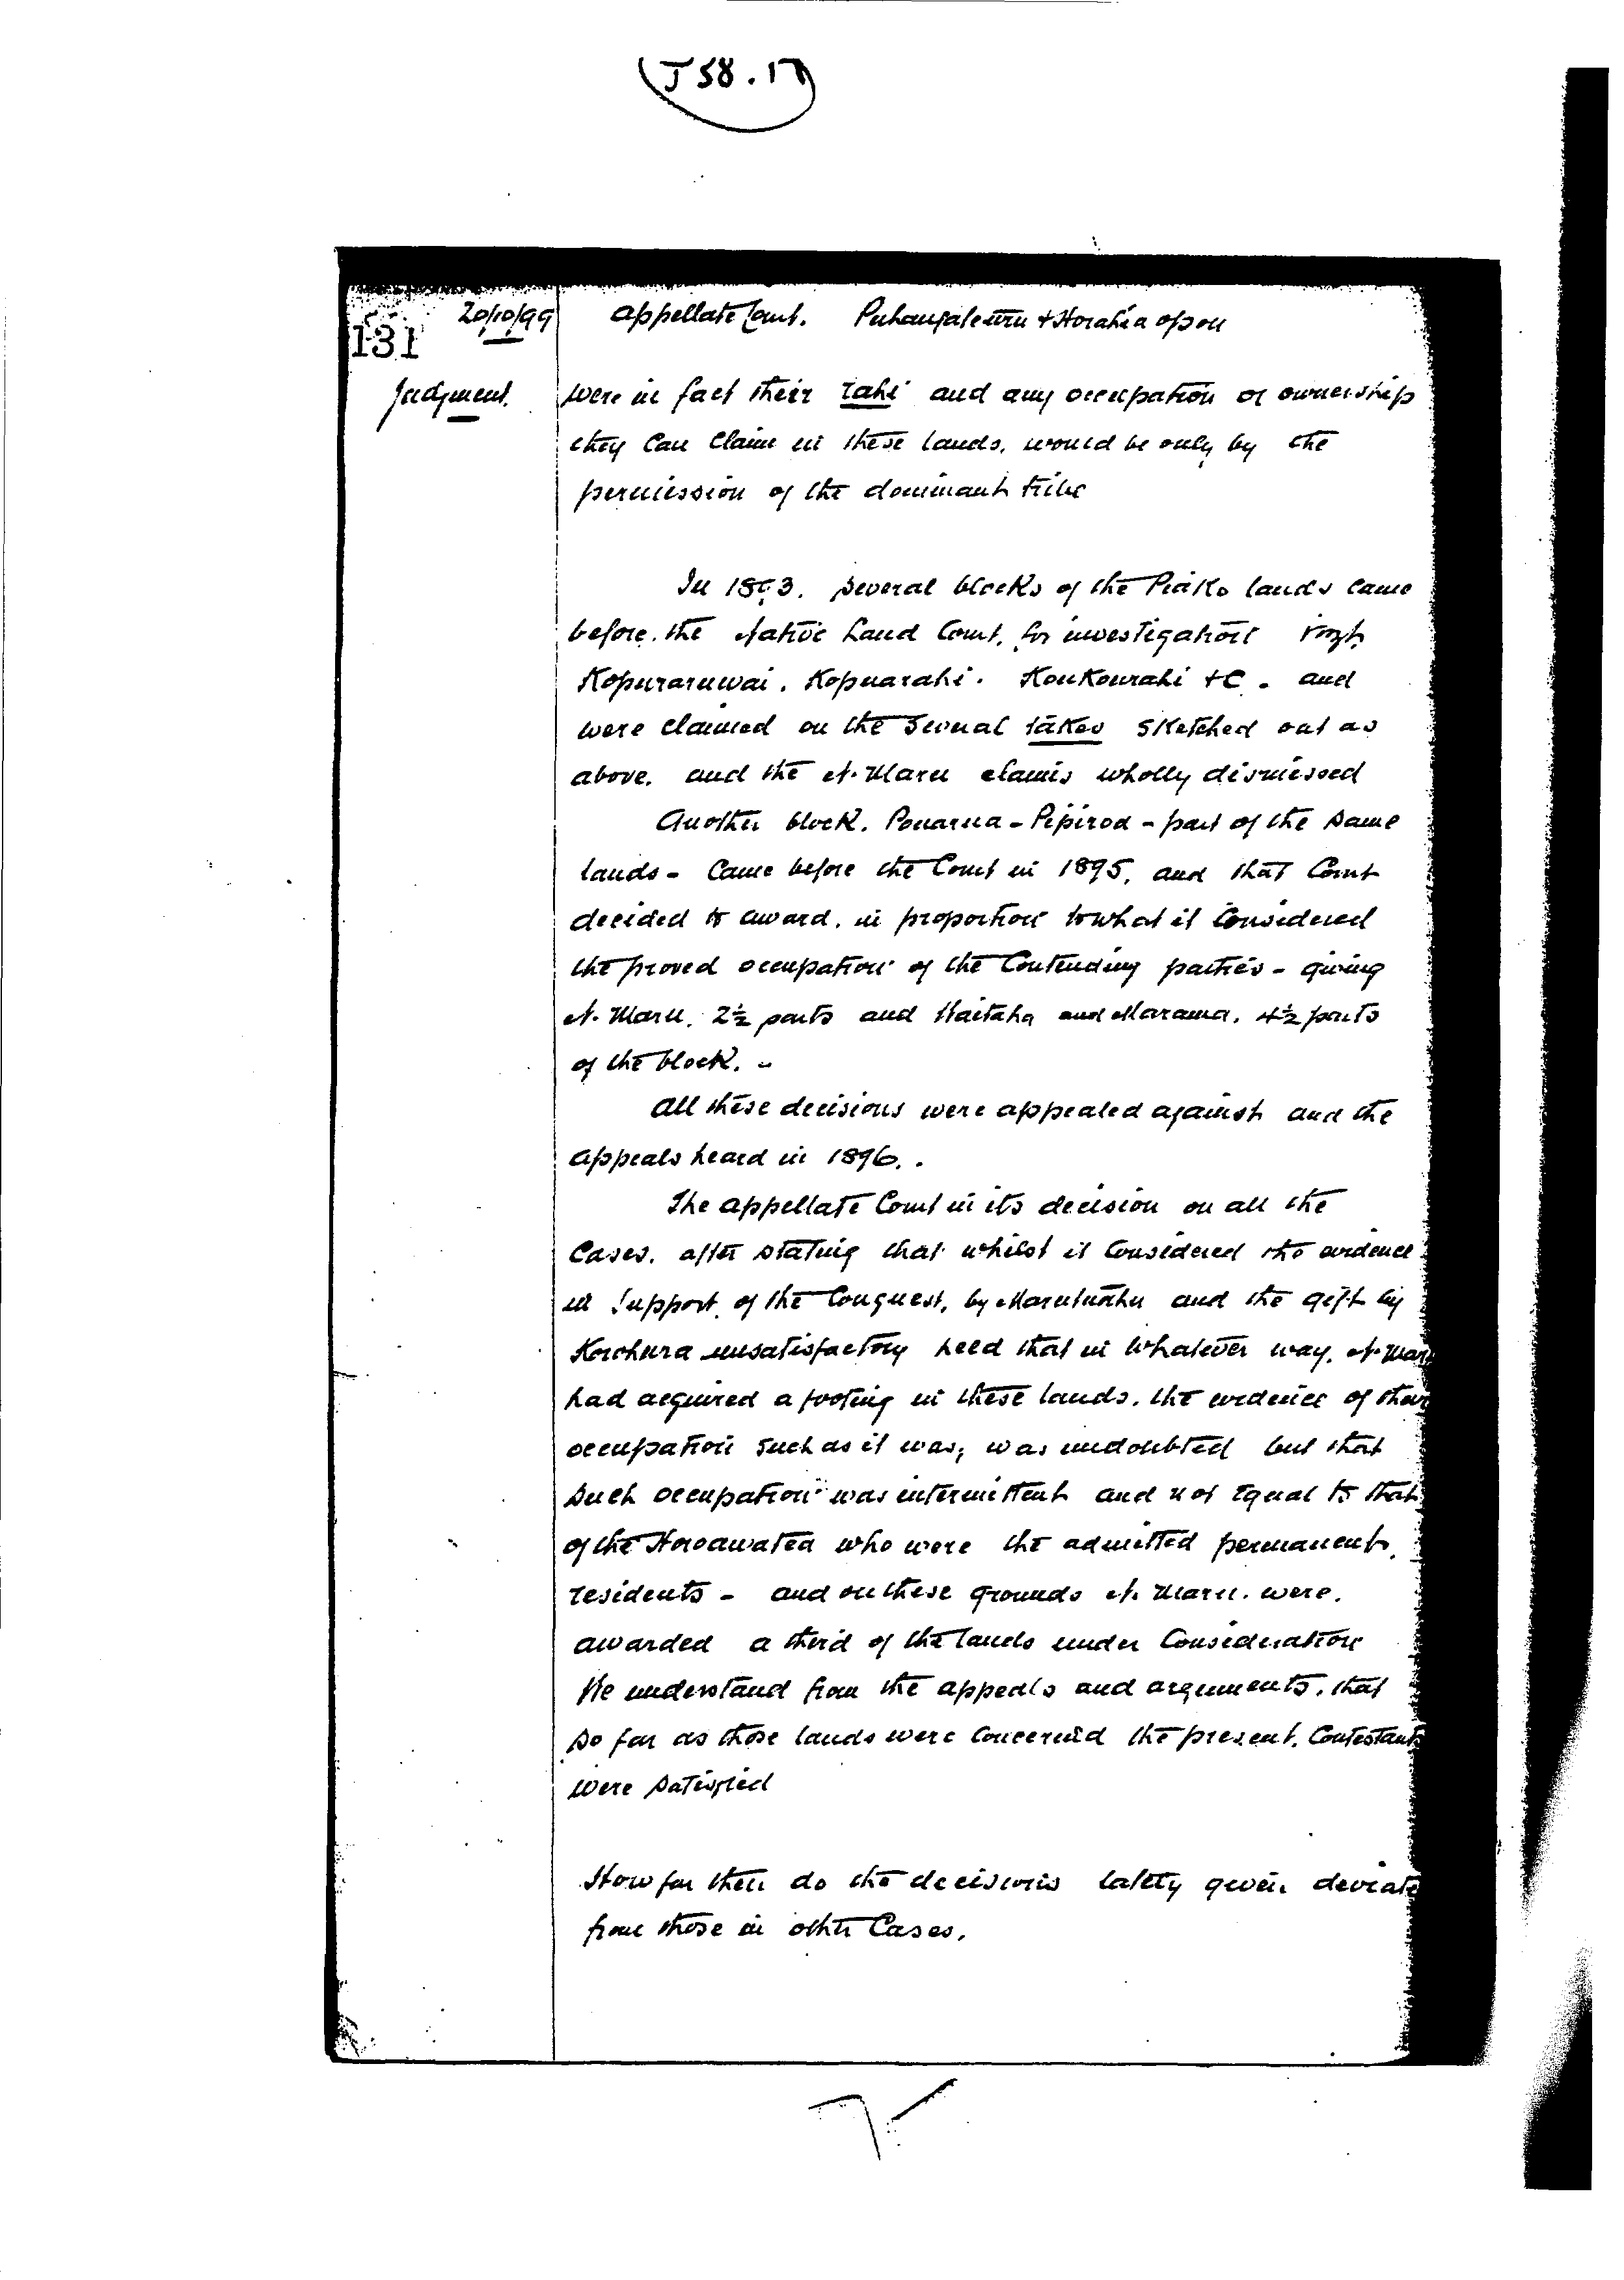 (J 58.17)
131 20/10/99 Appellate Court. Puhangateuru & Horahia opou
Judgment. were in fact their rahi and any occupation or ownership
they can claim in these lands, would be only by the
permission of the dominant tribe
In 1893. several blocks of the Piako lands came
before the Native Land Court, for investigation
Kopuraruwai. Kopuarahi. Koukourahi &c. and
were claimed on the several takes sketched out as
above. and the N. Maru claims wholly dismissed
Another block. Pouarua - Pipiroa - part of the same
lands - came before the Court in 1895, and that Court
decided to award. in proportion to what it considered
the proved occupation of the contending parties - giving
N. Maru. 2½ parts and Waitaha and Marama. 4½ parts
of the block. -
All these decisions were appealed against and the
appeals heard in 1896.
The Appellate Court in its decision on all the
cases. after stating that whilst it considered the evidence
in support of the Conquest, by Marutuahu and the gift by
unsatisfactory held that in whatever way. N. Maru
had acquired a footing in these lands. the evidence of their
occupation such as it was, was undoubted but that
such occupation was intermittent and not equal to that
of the Horoawatea who were the admitted permanent
residents - and on these grounds N. Maru. were.
awarded a third of the lands under consideration
We understand from the appeals and arguments. that
so far as those lands were concerned the present Contestants
were satisfied
How far then do the decisions lately given deviate
from those in other Cases.